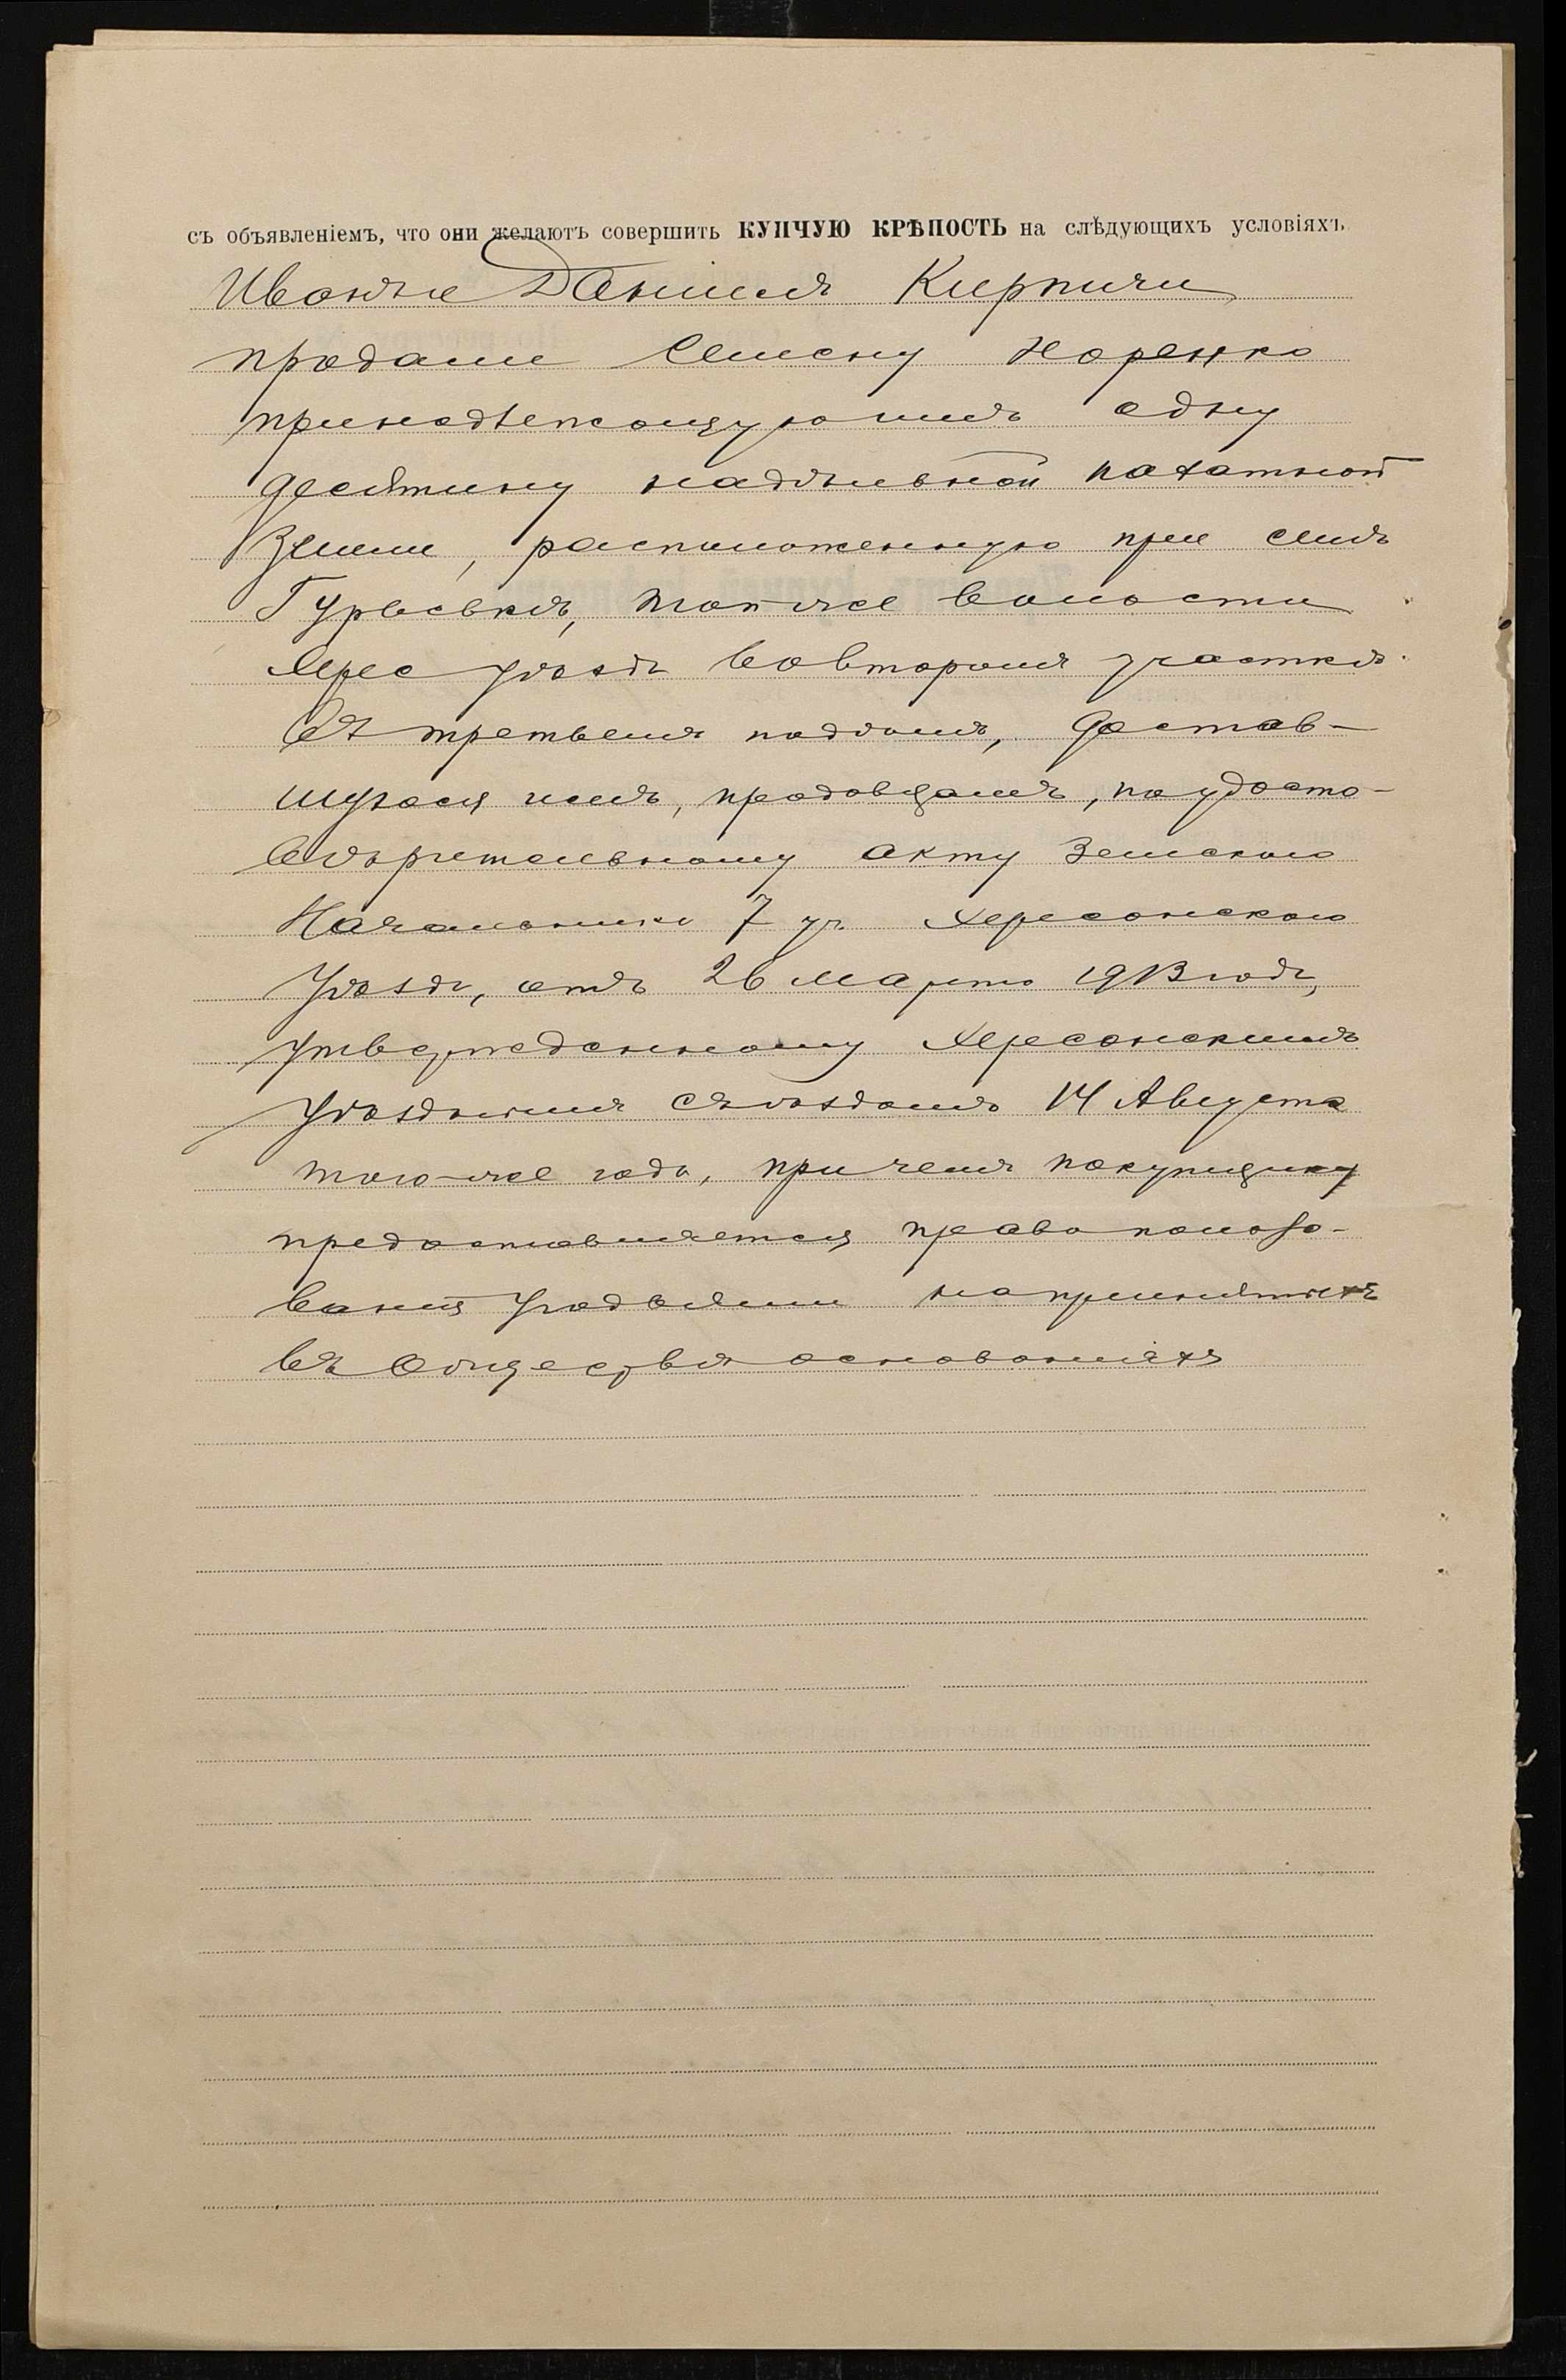 съ объявленіемъ, что они желаютъ совершить КУПЧУЮ КРѢПОСТЬ на слѣдующихъ условіяхъ
Данiилъ Кирпичи
продали Семену Норенко
принадлежащую имъ одну
десятину надѣльной пахатной
земли, расположенную при селѣ
Гурьевкѣ, той-же волости
Херс уѣзда во второмъ участкѣ
въ третьемъ полѣ, достав-
шуюся имъ, продавцамъ, по удосто-
вѣрительному акту Земского
Начальника 7 уч. Херсонского
уѣзда, отъ 26 Марта 1913 года,
утвержденному Херсонскимъ
Уѣзднымъ Съѣздомъ 14 Августа
того-же года, при чемъ покупщику
предоставляется право пользо-
ванія угодьями на принятыхъ
въ обществѣ основаніяхъ